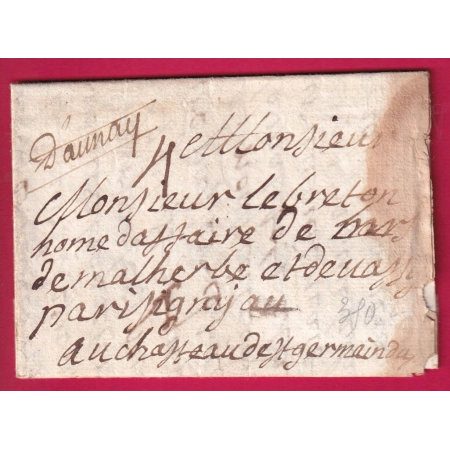 Daunay
4 A Monsieur
Monsieur lebreton
home daffaire de mr
demalherbe et devassy
parisignyj au
au chasteau de st germein da
350